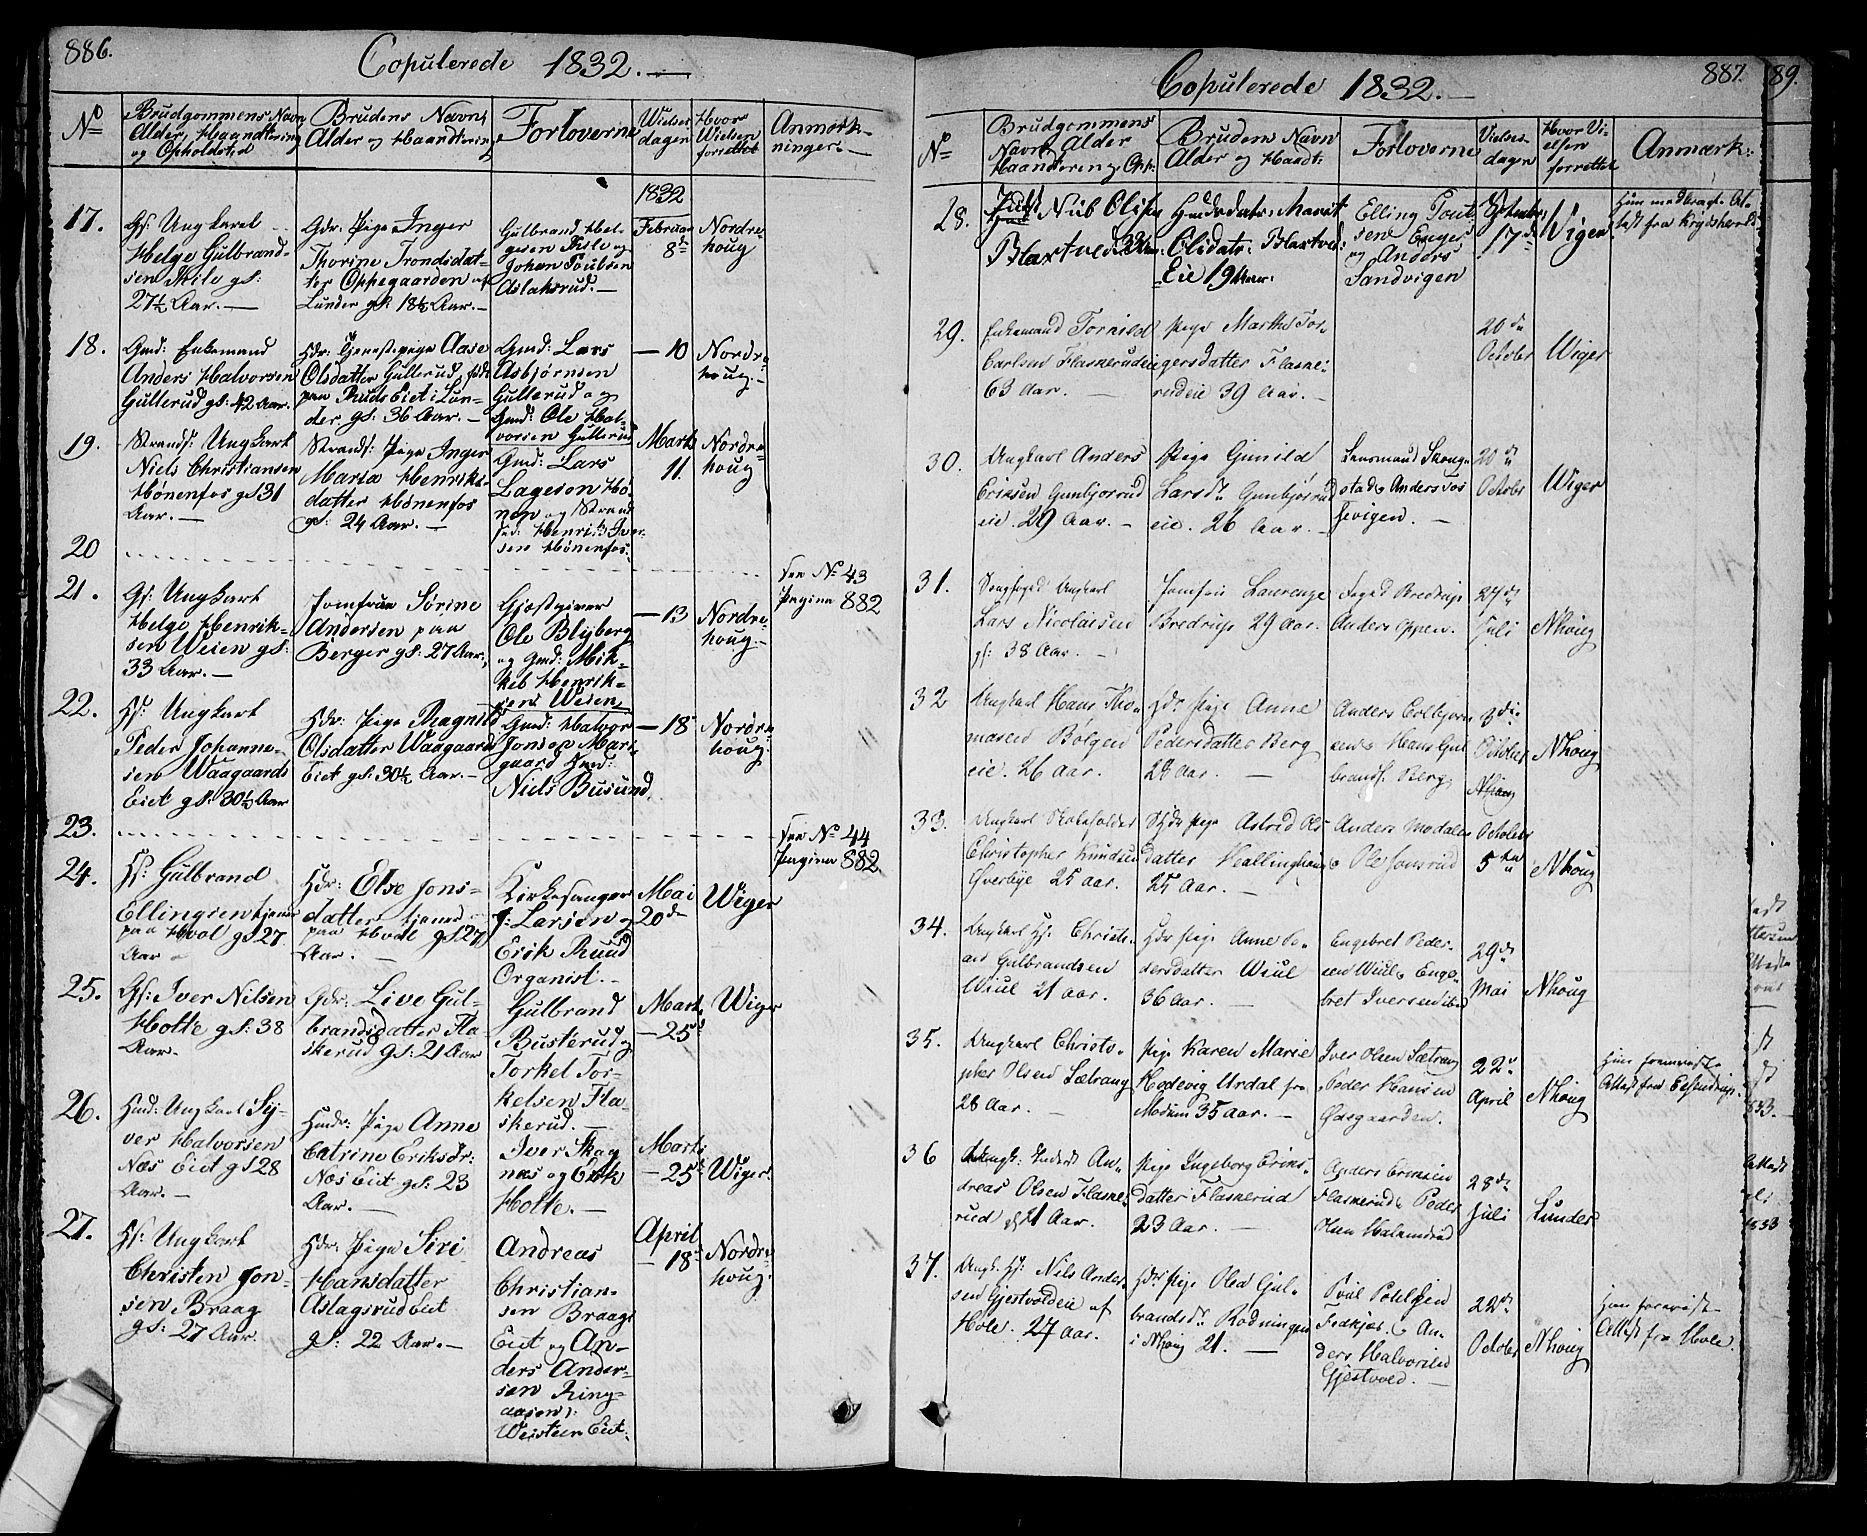 886.
Copulerede 1832.
No
Brudgommens Navn
Alder, Haandtering
og Opholdsted
Brudens Navn,
Alder og Haandtering
Forloverne
Vielses
dagen
Hvor
Vielsen
forrettet
Anmærk-
ninger.
1832
17.
Gf: Ungkarl
Helge Gulbrand-
sen
27½ Aar.
Gdr: Pige Inger
Thorine Trondsdat-
ter Oppegaarden af
Lunder gl: 18½ Aar.
Gulbrand Hel-
gesen
Johan Poulsen
Aslaksrud.
Februar
8de
Nordre-
houg
18.
Gmd: Enkemand
Anders Halvorsen
Gullerud gl: 42 Aar.
Hdr: Tjenestepige Aase
Olsdatter Gullerud, født
paa Ruds Eiet i Lun-
der gl: 36 Aar.
Gmd: Lars
Asbjørnsen
Gullerud og
Gmd: Ole Hal-
vorsen Gullerud
— 10
Nordre-
houg.
19.
Strands: Ungkarl
Niels Christiansen
Hønenfos gl 31
Aar.
Strands: Pige Inger
Maria Henriks-
datter Hønenfos
gl: 24 Aar.
Gmd: Lars
Lagesen Hø-
nen og Strand
sid: Henrik Iver-
sen Hønenfos.
Marts
11.
Nordre-
houg
20
see No 43
Pagina 882
21.
Gf: Ungkarl
Helge Henrik-
sen Weien gl:
33 Aar.
Jomfrue Sørine
Andersen paa
Berger gl: 27 Aar,
Gjæstgiver
Ole Blyberg
og Gmd: Mik-
kel Henrik-
sens Weien
— 13
Nordre-
houg
22.
Hf: Ungkarl
Peder Johanne-
sen Waagaards
Eiet gl: 30½ Aar
Hdr: Pige Ragnild
Olsdatter Waagaards
Eiet gl: 30½ Aar.
Gmd: Halvor
Jonsen Mar-
gaard
Niels Busund.
— 18
Nordre-
houg.
23.
see No 44
Pagina 882
24.
Hf: Gulbrand
Ellingsen tjener
paa Hval gl 27
Aar
Hdr: Else Jons-
datter tjener
paa Hval gl 27
Aar.
Kirkesanger
J: Larsen og
Erik Ruud
Organist.
Mai
20de
Wiger
25.
Gf: Iver Nilsen
Holte gl: 38
Aar.
Gdr: Live Gul-
brandsdatter Fla-
skerud gl: 21 Aar
Gulbrand
Busterud og
Torkel Tor-
kelsen Fla-
skerud.
Marts
— 25
Wiger
26.
Hmd: Ungkarl Sy-
ver Halvorsen
Næs Eiet gl 28
Aar.
Hmdr: Pige Anne
Catrine Eriksdr:
Næs Eiet gl: 23
Aar.
Iver Skag
næs og Erik
Holte.
Marts
— 25
Wiger.
27.
Hf: Ungkarl
Christen Jon-
sen Braag
gl: 27 Aar.
Hdr: Pige Siri
Hansdatter
Aslagsrud Eiet
gl: 22 Aar.
Andreas
Christian-
sen Braags
Eiet og An-
ders Ander-
sen Ring-
aasen,
Weisteen Eiet.
April
— 18
Nordre-
houg.
887.
89.
Copulerede 1832.
No
Brudgommens
Navn, Alder
Haandtering, Oph:
Brudens Navn
Alder og Haandt:
Forloverne
Vielses-
dagen
Hvor Vi-
elsen
forrettet
Anmærk:
28.
Nub Olsen
Blaxtvedt 33 Aar.
Huusdatr. Marit
Olsdatr. Blaxtved.
Eie 19 Aar.
Elling Poul
sen Enger
og Anders
Sandvigen
September
17de
Viger
Hun medbragt At-
test fra Rygsherald
29.
Enkemand Tornild
Carlsen Flasnerudeie
63 Aar.
Pige Marthe Tor-
gersdatter Flasne-
rudeie 39 Aar.
20de
October
Wiger
30.
Ungkarl Anders
Ericksen Gunbjorrud
eie. 29 Aar.
Pige Gunild
Larsdr. Gunbjorrud
eie. 26 Aar.
Lensmand Skoug-
stad & Anders Fos
sevigen.
20de
October
Wiger
31.
Ungkarl
Lars Nicolaisen
gl: 38 Aar.
Jomfru Laurenze
Bredrup 29 Aar.
Foged Bredrup
Anders Oppen.
27de
Juli
Nhoug
32
Ungkarl Hans Tho-
masen Bølgen
eie. 26 Aar.
Hdr Pige Anne
Pedersdatter Berg
28 Aar.
Anders Colbjorn
sen & Hans Gul
brands. Berg
October
Nhoug
Nhoug
33.
Ungkarl
Christopher Knudsen
Øverbye 25 Aar.
Pige Astrid Ols-
datter Hallinghaug
25 Aar.
Anders Modalen
& Ole Jonsrud
October
5te
Nhoug
34.
Ungkarl Hf. Christi-
an Gulbrandsen
Wiul 21 aar.
Hdr Pige Anne Pe-
dersdatter Wiul
36 Aar.
Engebret Peder-
sen Wiul & Enge-
bret Iversen ibd
29de
Mai
Nhoug
35.
Ungkarl Christo-
pher Olsen Sætrang
28 Aar.
Pige Karen Marie
Hedevig Urdal fra
Modum 35 aar.
Iver Olsen Sætrang
Peder Hansen
Øegaarden.
22de
April
Nhoug
Hun foreviiste
Attest fra
36
Ungk: An-
dreas Olsen Flasne-
rud gl 21 Aar.
Pige Ingeborg Erics-
datter Flasnerud
23 Aar.
Anders Ericsen
Flasnerud & Peder
Olsen Halmrud
28de
Juli
Lunder
37.
Ungk. Hf. Nils Ander-
sen Gjestvoldeie af
Hole. 27 Aar.
Hdr Pige Olea Gul-
brandsdr. Rodningen
i Nhoug 21.
Poul Poulsen
& An-
ders Halvorsen
Gjestvold.
22de
October
Nhoug
Han foreviste
Attest fra Hole.